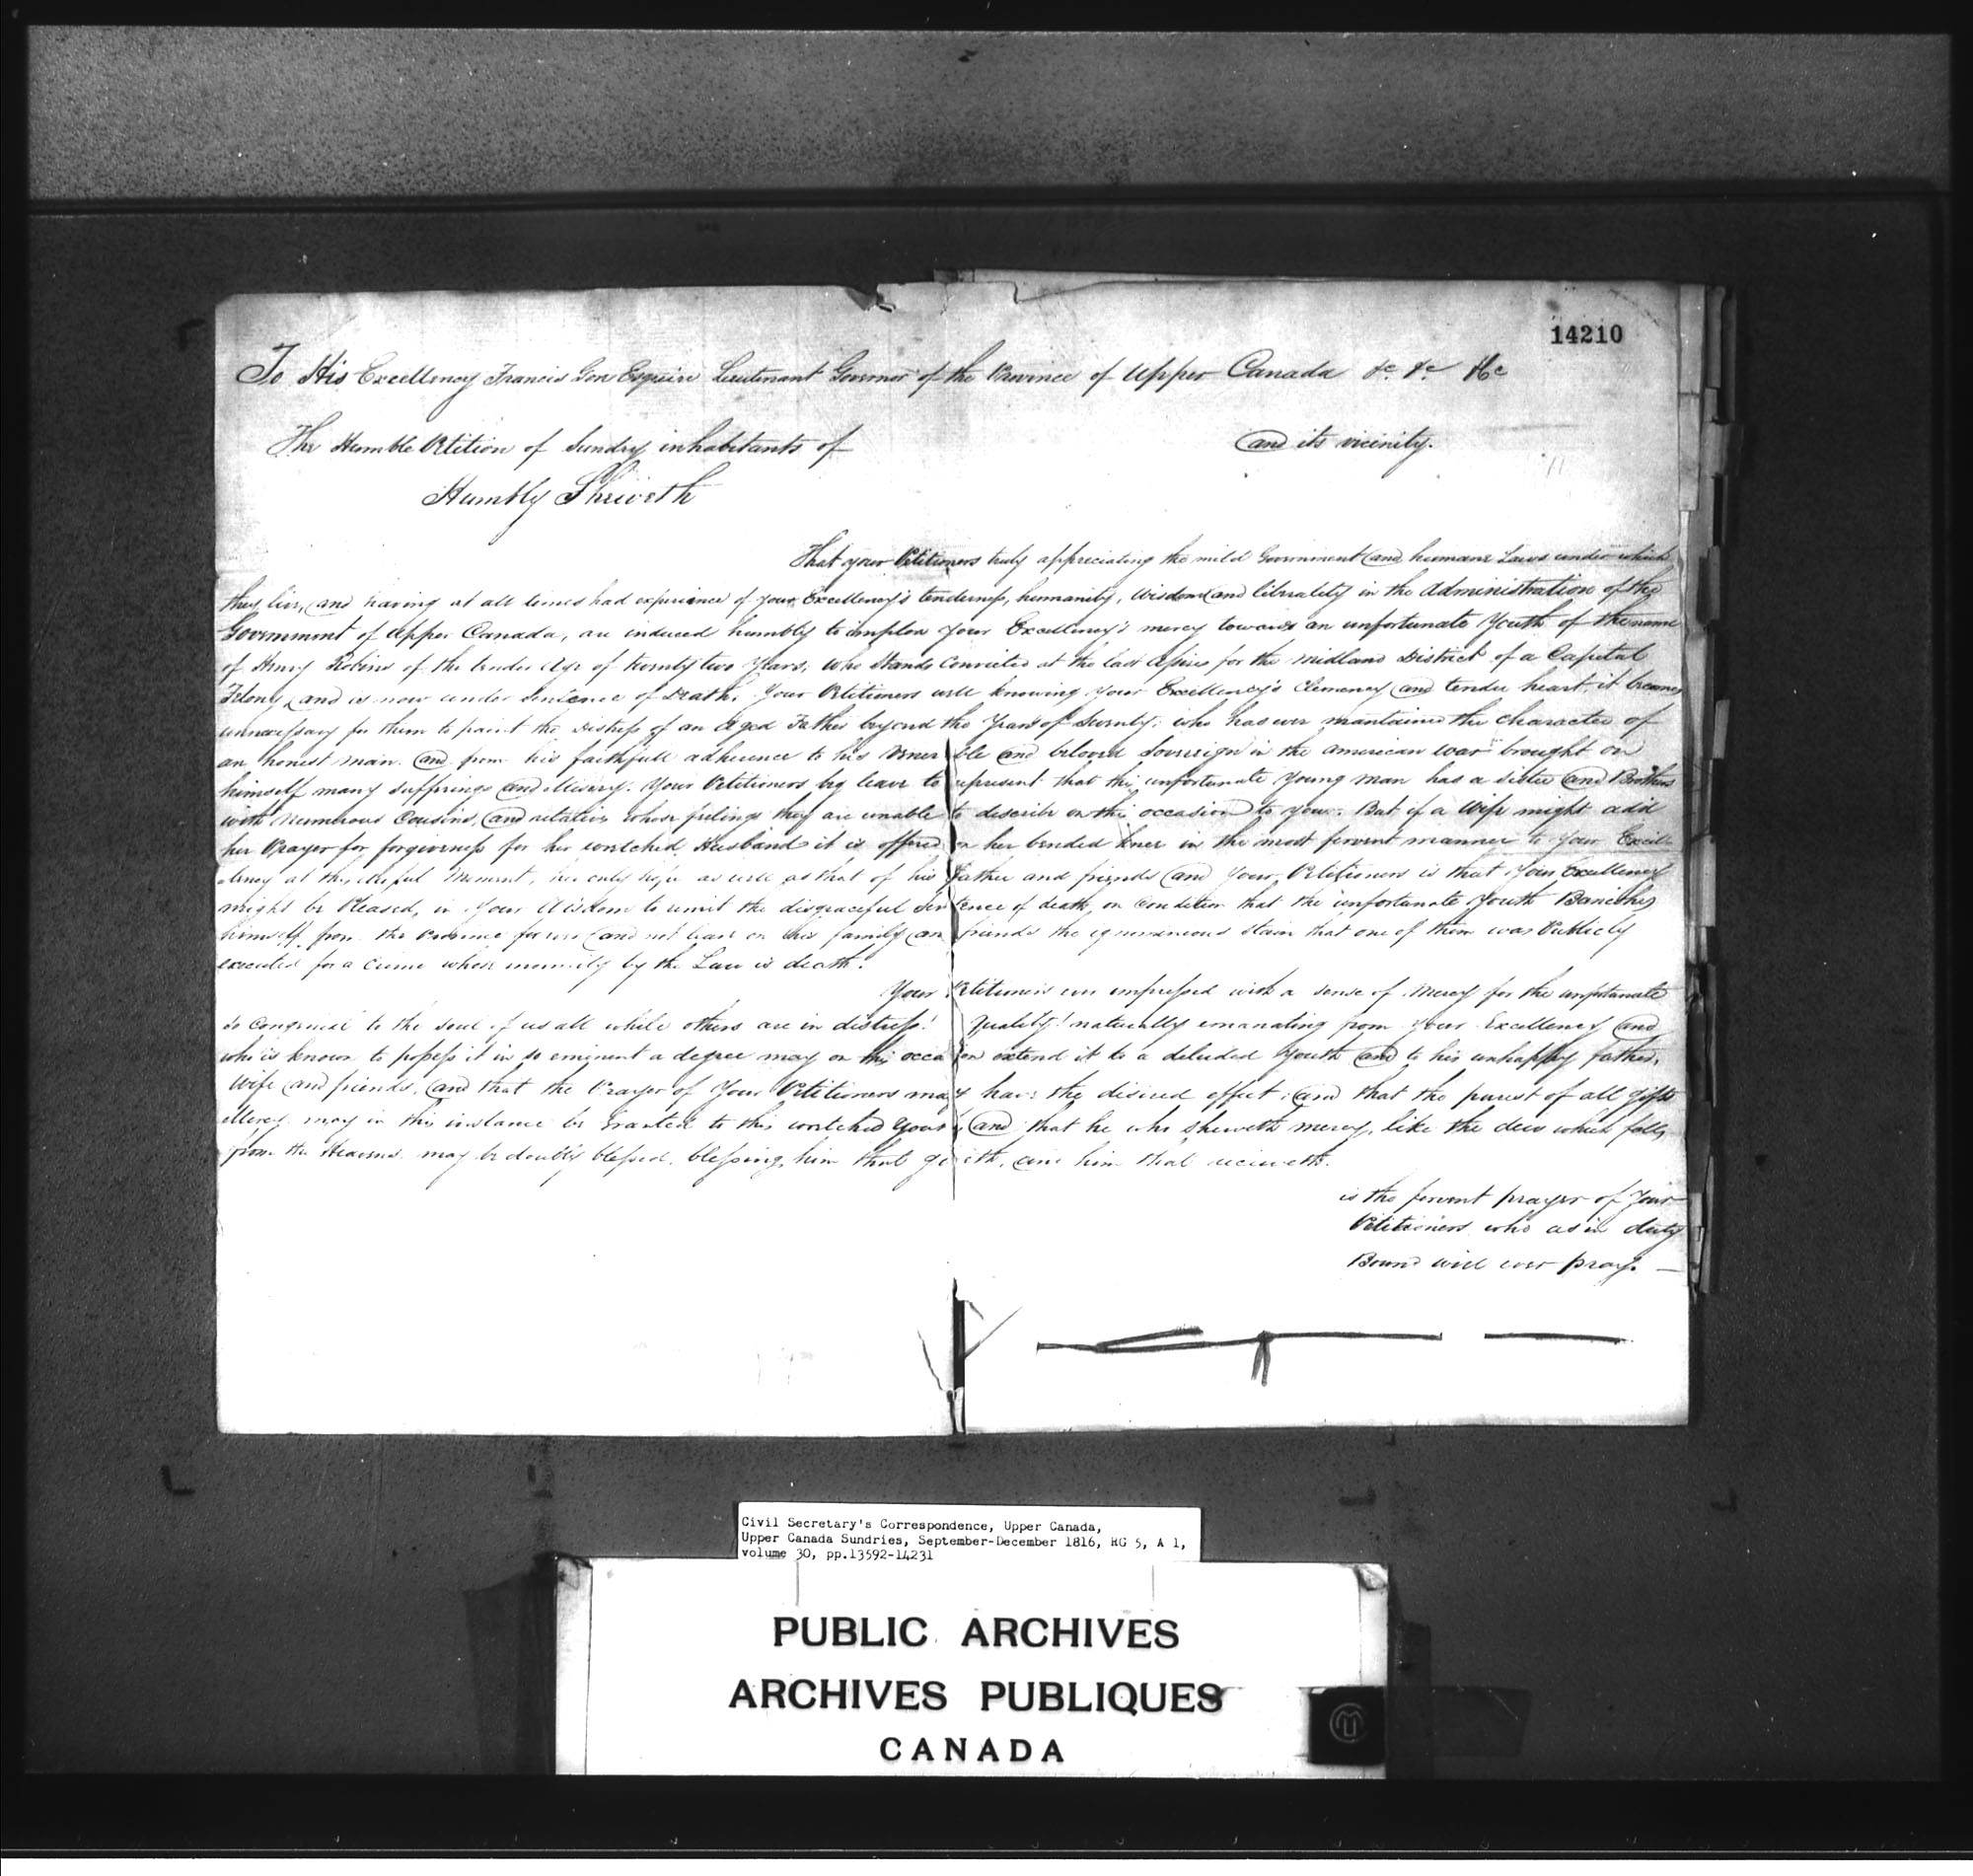 14210
To His Excellency Francis Gore Esquire Lieutenant Governor of the Province of Upper Canada &c. &c &c
The Humble Petition of Sundry inhabitants of and its vicinity.
Humbly Sheweth
That your Petitioners truly appreciating the mild Government and humane Laws under which
they live, and having at all times had experience of your Excellency's tenderness, humanity, wisdom and liberality in the Administration of the
Government of Upper Canada, are induced humbly to implore your Excellency's mercy towards an unfortunate Youth of the name
of Henry Robins of the tender Age of twenty two Years, who stands convicted at the last Assizes for the Midland District of a Capital
Felony, and is now under sentence of Death. Your Petitioners well knowing your Excellency's Clemency and tender heart, it becomes
unnecessary for them to paint the distress of an Aged Father beyond the Years of Seventy: who has ever mantained the character of
an honest man. and from his faithfull adherence to his Venerable and beloved Sovereign in the american war brought on
himself many sufferings and Misery. Your Petitioners beg leave to represent that this unfortunate young man has a sister and Brothers
with numerous Cousins, and relatives whose feelings they are unable to describe on this occasion to you. But if a Wife might add
her Prayer for forgiveness for her wretched Husband it is offered on her bended knees in the most fervent manner to your Excel-
lency at this awful Moment, her only hope as well as that of his Father and friends and your Petitioners is that your Excellency
might be Pleased, in your Wisdom to remit the disgraceful sentence of death, on condition that the unfortunate Youth Banishes
himself from the Province forever and not leave on his family and friends the ignominious stain that one of them was Publicly
executed for a crime whose enormity by the Law is death.
Your Petitioners ever impressed with a sense of Mercy for the unfortunate
so congenial to the soul of us all while others are in distress! Quality! naturally emanating from your Excellency and
who is known to possess it in so eminent a degree may on this occasion extend it to a deluded youth and to his unhappy father,
Wife and friends, and that the Prayer of Your Petitioners may have the desired effect: and that the purest of all gifts
Mercy may in this instance be Granted to this wretched Youth, and that he who sheweth mercy, like the dew which falls
from the Heavens may be doubly blessed, blessing him that giveth, and him that receiveth.
is the fervent prayer of Your
Petitioners who as in duty
Bound will ever pray. —
Civil Secretary's Correspondence, Upper Canada,
Upper Canada Sundries, September-December 1816, RG 5, A 1,
volume 30, pp.13592-14231
PUBLIC ARCHIVES
ARCHIVES PUBLIQUES
CANADA